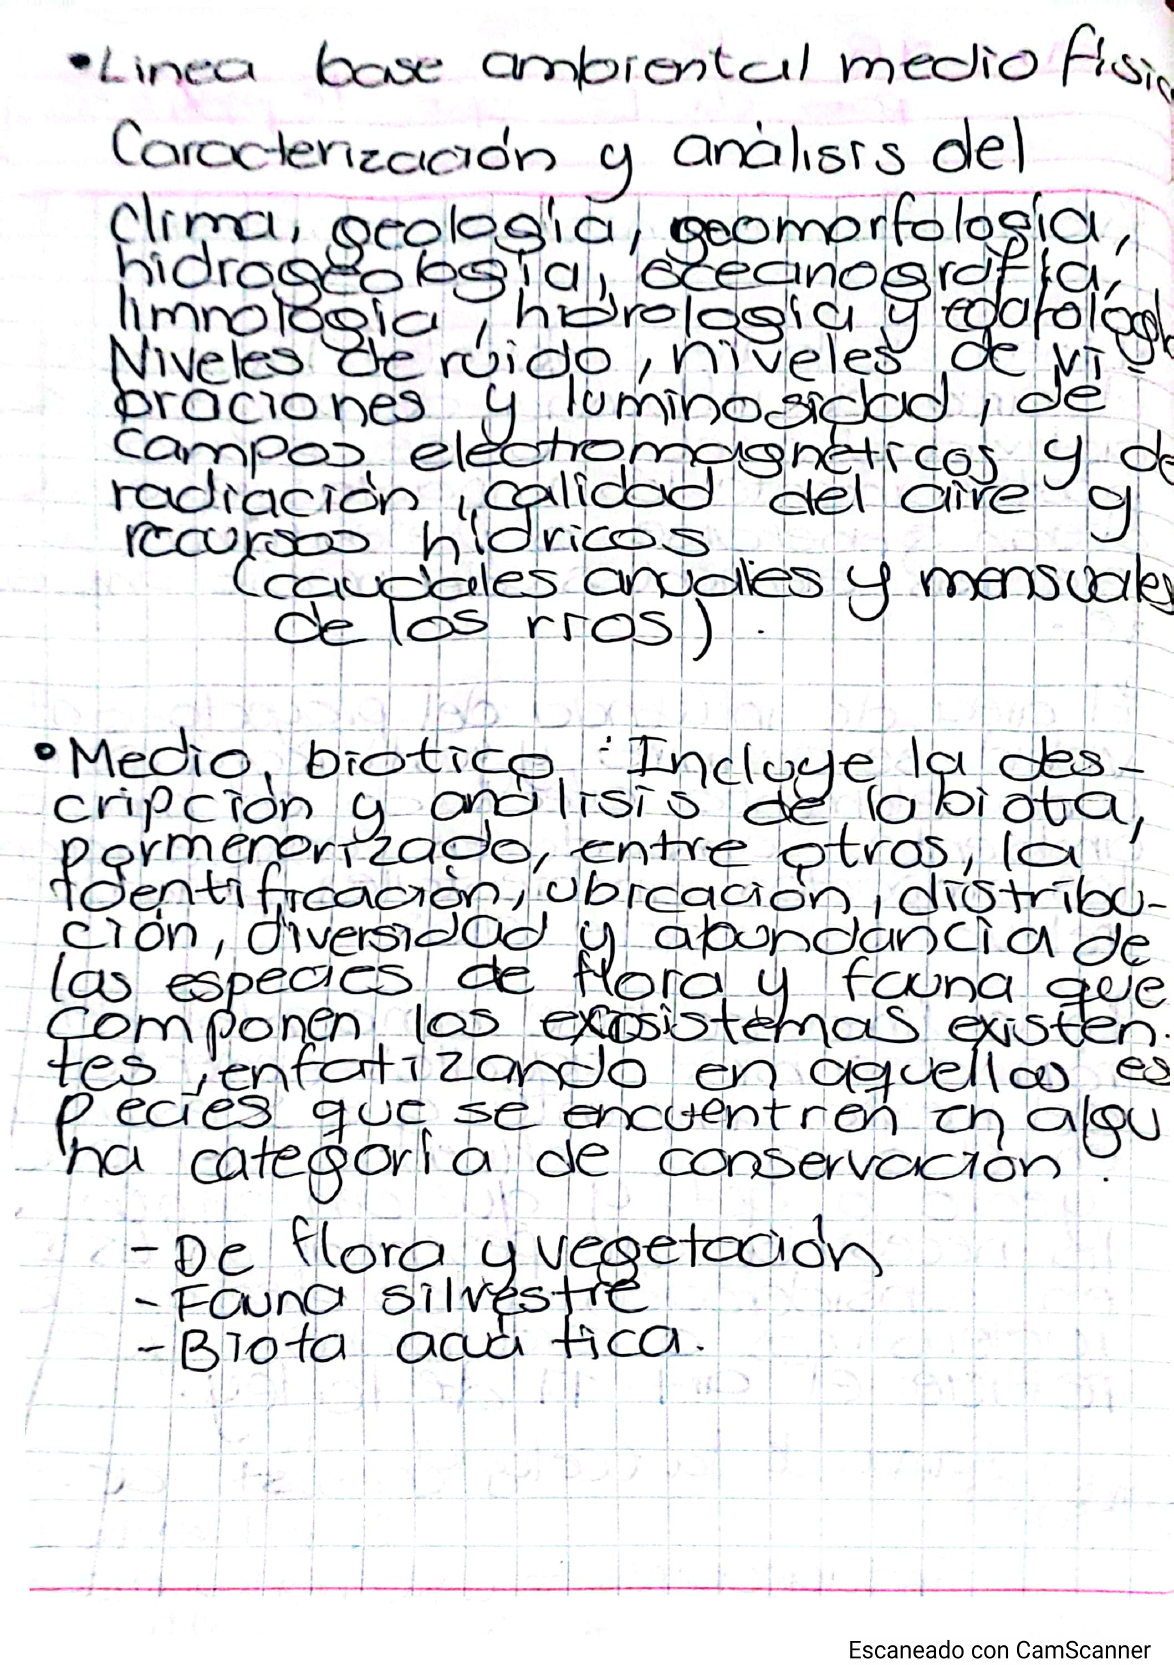 •Linea base ambiental medio físic
Caracterización y análisis del
clima, geología, geomorfología,
hidrogeología, oceanografía,
limnología, hidrología y edafolog
Niveles de ruido, niveles de vi-
braciones y luminosidad, de
campos electromagnéticos y de
radiación, calidad del aire y
recursos hídricos
(caudales anuales y mensuales
de los rios).
•Medio, biotico : Incluye la des-
cripción y análisis de la biota,
pormenorizado, entre otros, la
identificación, ubicación, distribu-
ción, diversidad y abundancia de
las especies de flora y fauna que
componen los exosistemas existen.
tes, enfatizando en aquellas es
pecies que se encuentren en algu
na categoría de conservación.
- De flora y vegetación
- Fauna silvestre
- Biota acuática.
Escaneado con CamScanner